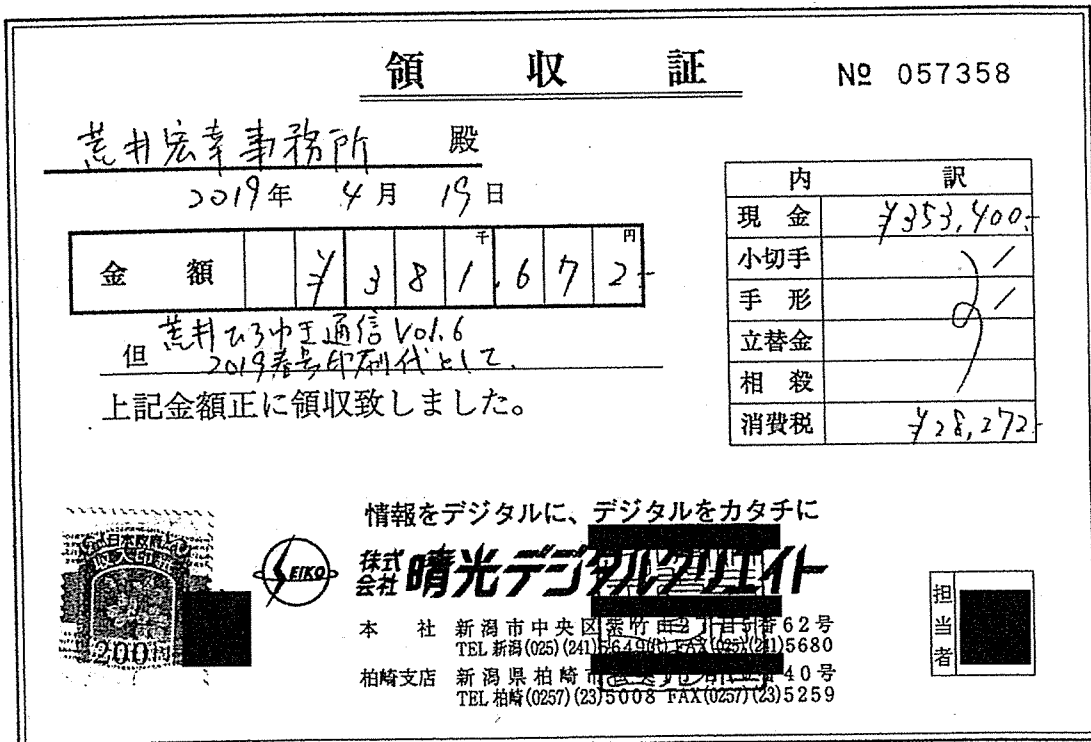 領収証
№ 057358
荒井宏幸事務所 殿
2019年 4月 19日
金額 ¥381,672-
千 円
但 荒井ひろゆき通信 Vol.6
2019春号印刷代として.
上記金額正に領収致しました。
内訳
現金 ¥353,400-
小切手
手形
立替金
相殺
消費税 ¥28,272-
情報をデジタルに、デジタルをカタチに
SEIKO 株式会社 晴光デジタルクリエイト
本社 新潟市中央区紫竹山2丁目5番62号
TEL 新潟(025)(241)5649㈹ FAX(025)(241)5680
柏崎支店 新潟県柏崎市 40号
TEL 柏崎(0257)(23)5008 FAX(0257)(23)5259
担当者
日本政府
200円